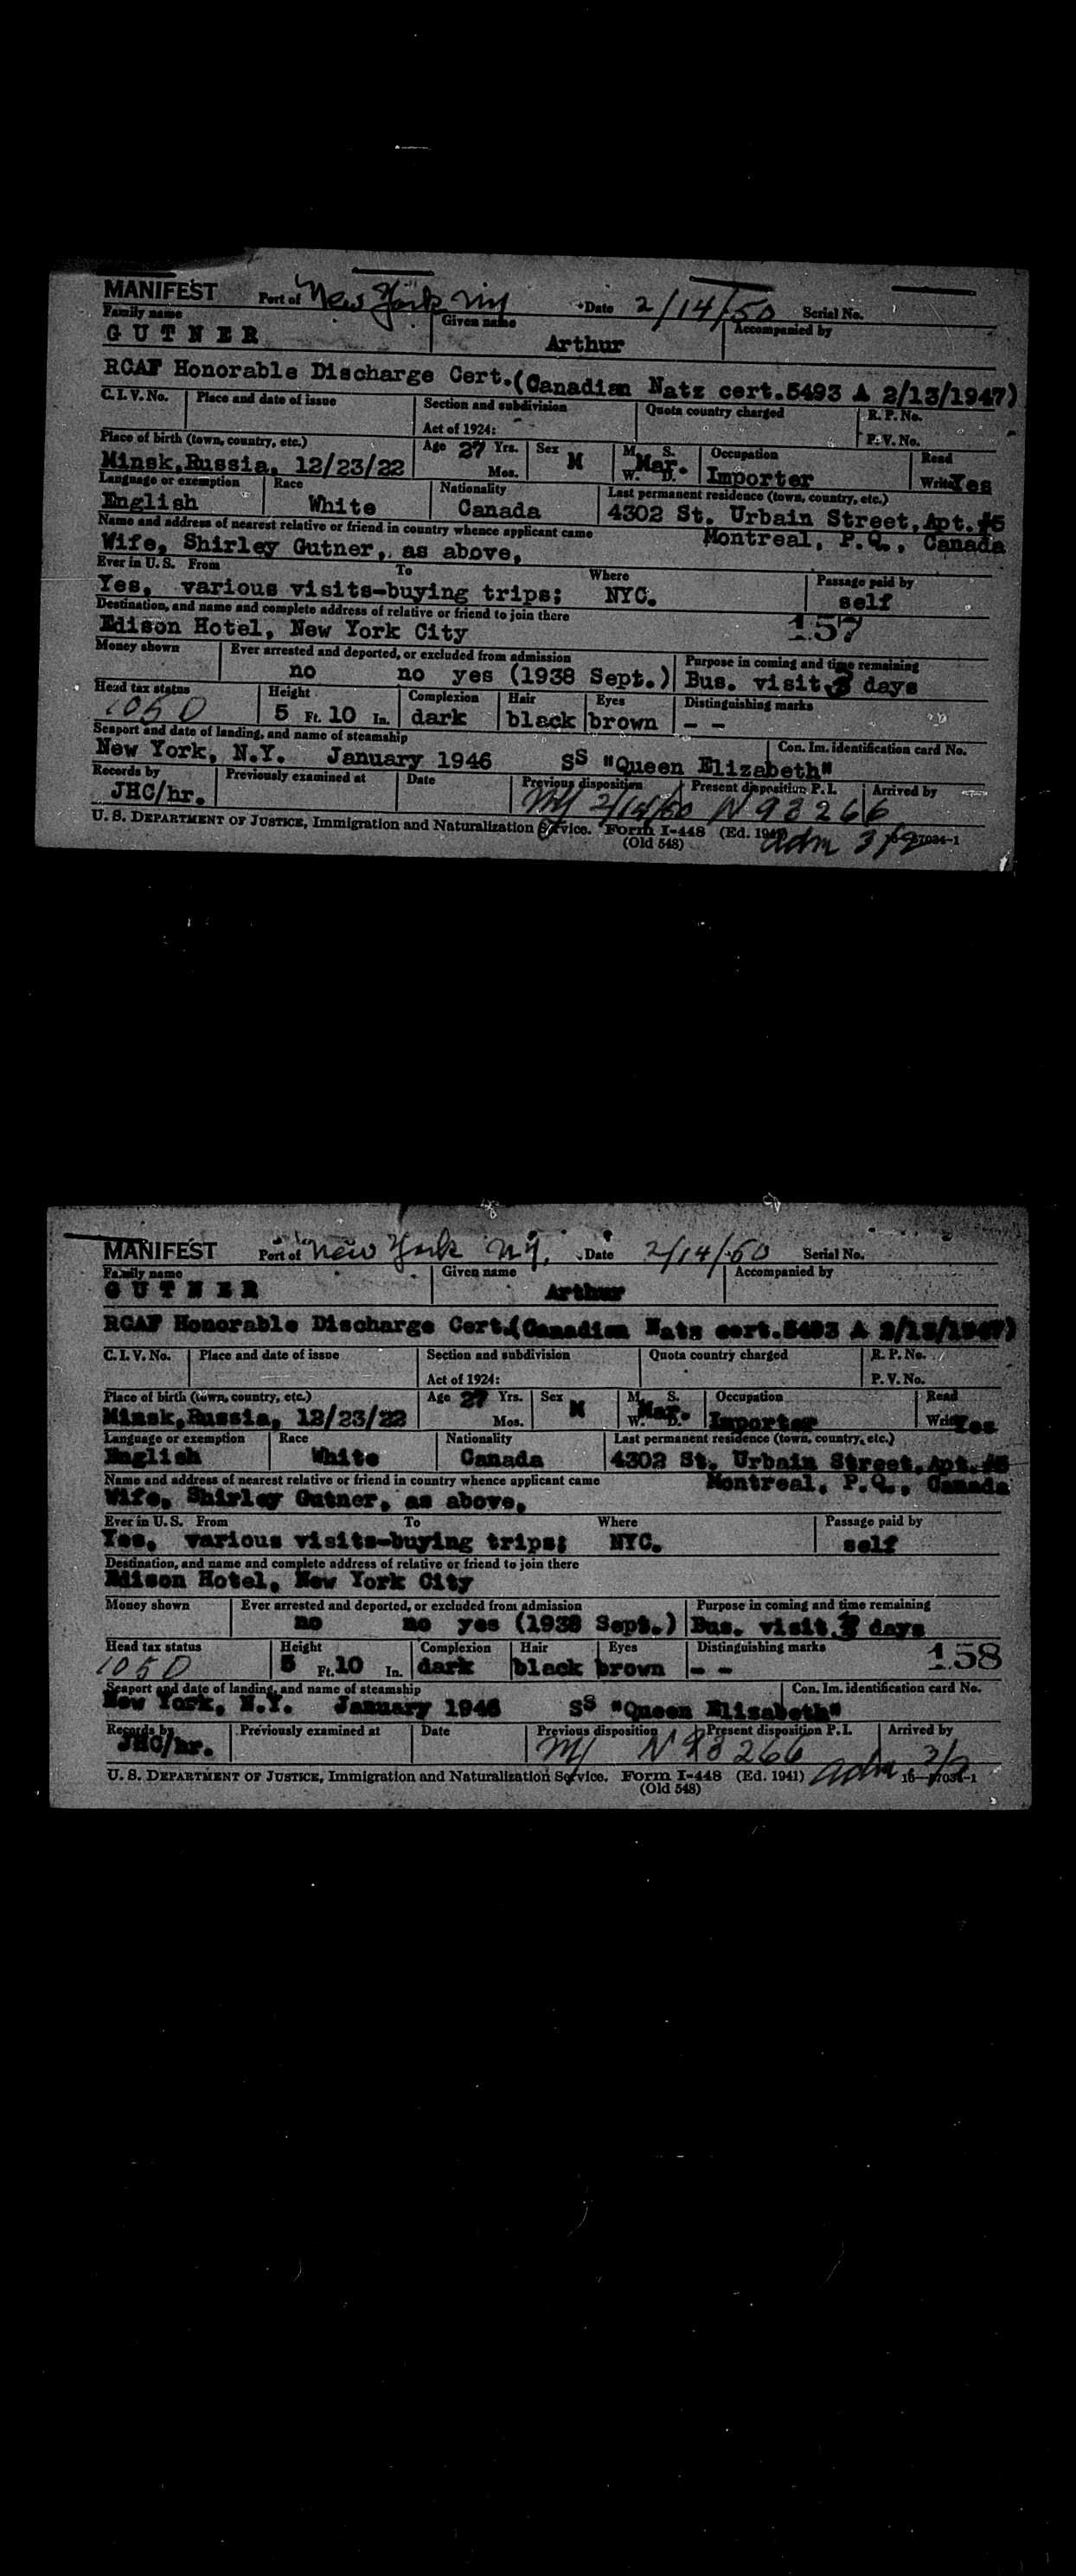 MANIFEST Port of New York NY Date 2/14/50 Serial No.
Family name Given name Accompanied by
GUTNER Arthur
RCAF Honorable Discharge Cert.(Canadian Natz cert.5493 A 2/13/1947)
C. I. V. No. Place and date of issue Section and subdivision Quota country charged R. P. No.
Act of 1924: P. V. No.
Place of birth (town, country, etc.) Age 27 Yrs. Sex M. S. Occupation Read
Minsk,Russia, 12/23/22 Mos. M Mar. W. D. Importer Write Yes
Language or exemption Race Nationality Last permanent residence (town, country, etc.)
English White Canada 4302 St. Urbain Street,Apt.#5
Name and address of nearest relative or friend in country whence applicant came Montreal, P.Q., Canada
Wife, Shirley Gutner, as above,
Ever in U. S. From To Where Passage paid by
Yes, various visits-buying trips; NYC. self
Destination, and name and complete address of relative or friend to join there 157
Edison Hotel, New York City
Money shown Ever arrested and deported, or excluded from admission Purpose in coming and time remaining
no no yes (1938 Sept.) Bus. visit 3 days
Head tax status Height Complexion Hair Eyes Distinguishing marks
1050 5 Ft. 10 In. dark black brown - -
Seaport and date of landing, and name of steamship Con. Im. identification card No.
New York, N.Y. January 1946 SS "Queen Elizabeth"
Records by Previously examined at Date Previous disposition Present disposition P. I. Arrived by
JHC/hr. NY 2/14/50 N 93266
U. S. DEPARTMENT OF JUSTICE, Immigration and Naturalization Service. Form I-448 (Ed. 1941) adm 3/2 16-17034-1
(Old 548)
MANIFEST Port of New York NY. Date 2/14/50 Serial No.
Family name Given name Accompanied by
GUTNER Arthur
RCAF Honorable Discharge Cert.(Canadian Natz cert.5493 A 2/13/1947)
C. I. V. No. Place and date of issue Section and subdivision Quota country charged R. P. No.
Act of 1924: P. V. No.
Place of birth (town, country, etc.) Age 27 Yrs. Sex M. S. Occupation Read
Minsk,Russia, 12/23/22 Mos. M Mar. W. D. Importer Write Yes
Language or exemption Race Nationality Last permanent residence (town, country, etc.)
English White Canada 4302 St. Urbain Street,Apt.#5
Name and address of nearest relative or friend in country whence applicant came Montreal, P.Q., Canada
Wife, Shirley Gutner, as above,
Ever in U. S. From To Where Passage paid by
Yes, various visits-buying trips; NYC. self
Destination, and name and complete address of relative or friend to join there
Edison Hotel, New York City
Money shown Ever arrested and deported, or excluded from admission Purpose in coming and time remaining
no no yes (1938 Sept.) Bus. visit 3 days
Head tax status Height Complexion Hair Eyes Distinguishing marks 158
1050 5 Ft. 10 In. dark black brown - -
Seaport and date of landing, and name of steamship Con. Im. identification card No.
New York, N.Y. January 1946 SS "Queen Elizabeth"
Records by Previously examined at Date Previous disposition Present disposition P. I. Arrived by
JHC/hr. NY N 93266
U. S. DEPARTMENT OF JUSTICE, Immigration and Naturalization Service. Form I-448 (Ed. 1941) adm 3/2 16-17034-1
(Old 548)